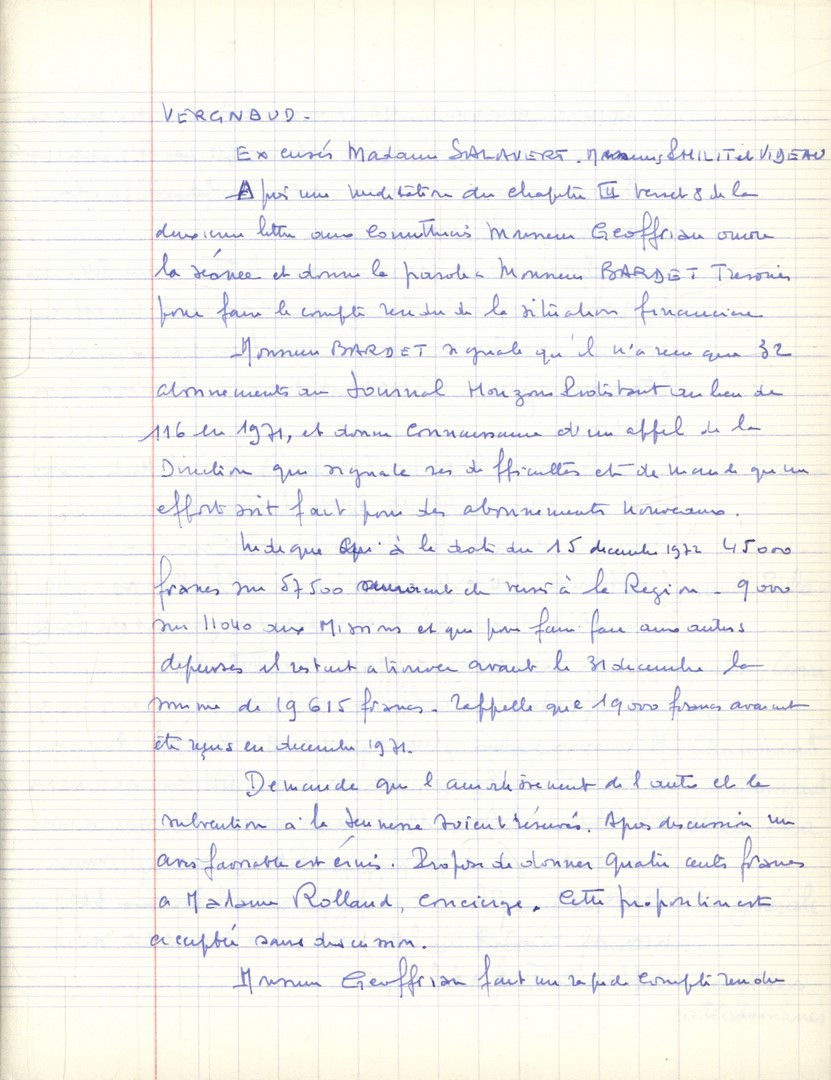 VERGNAUD.
Excusés Madame SALAVERT. Messieurs et VIDEAU
Après une méditation du chapitre III verset 8 de la
deuxieme lettre aux Corinthiens Monsieur Geoffriau ouvre
la séance et donne la parole a Monsieur BARDET Tresorier
pour faire le compte rendu de la situation financiere
Monsieur BARDET signale qu'il n'a reçu que 32
abonnements au Journal Horizons Protestant au lieu de
116 en 1971, et donne connaissance d'un appel de la
Direction qui signale ses difficultés et demande qu'un
effort soit fait pour des abonnements nouveaux.
Indique qu'à la date du 15 decembre 1972 45000
francs sur 57500 auraient été versé à la Region - 9000
sur 11040 aux Missions et que pour faire face aux autres
depenses il restait a trouver avant le 31 decembre la
somme de 19615 francs. Rappelle que 19000 francs avaient
été reçus en decembre 1971.
Demande que l'amortissement de l'auto et la
subvention à la Jeunesse soient réservés. Apres discussion un
avis favorable est émis. Propose de donner quatre cents francs
a Madame Rolland, Concierge. Cette proposition est
acceptée sans discussion.
Monsieur Geoffriau fait un rapide compte rendu